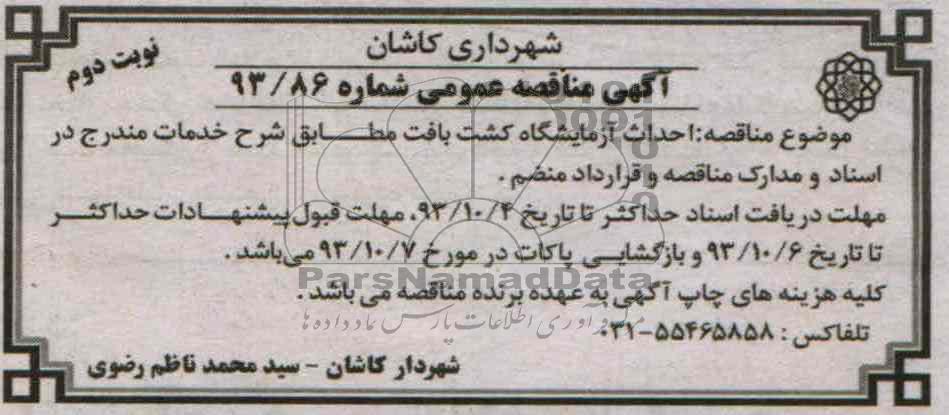 شهرداری کاشان
نوبت دوم
آگهی مناقصه عمومی شماره ۹۳/۸۶
موضوع مناقصه:احداث آزمایشگاه کشت بافت مطابق شرح خدمات مندرج در
اسناد و مدارک مناقصه و قرارداد منضم .
مهلت دریافت اسناد حداکثر تا تاریخ ۹۳/۱۰/۴، مهلت قبول پیشنهادات حداکثر
تا تاریخ ۹۳/۱۰/۶ و بازگشایی پاکات در مورخ ۹۳/۱۰/۷ می‌باشد .
ParsNamadData
کلیه هزینه های چاپ آگهی به عهده برنده مناقصه می باشد .
تلفاکس : ۵۵۴۶۵۸۵۸-۰۳۱
شهردار کاشان - سید محمد ناظم رضوی